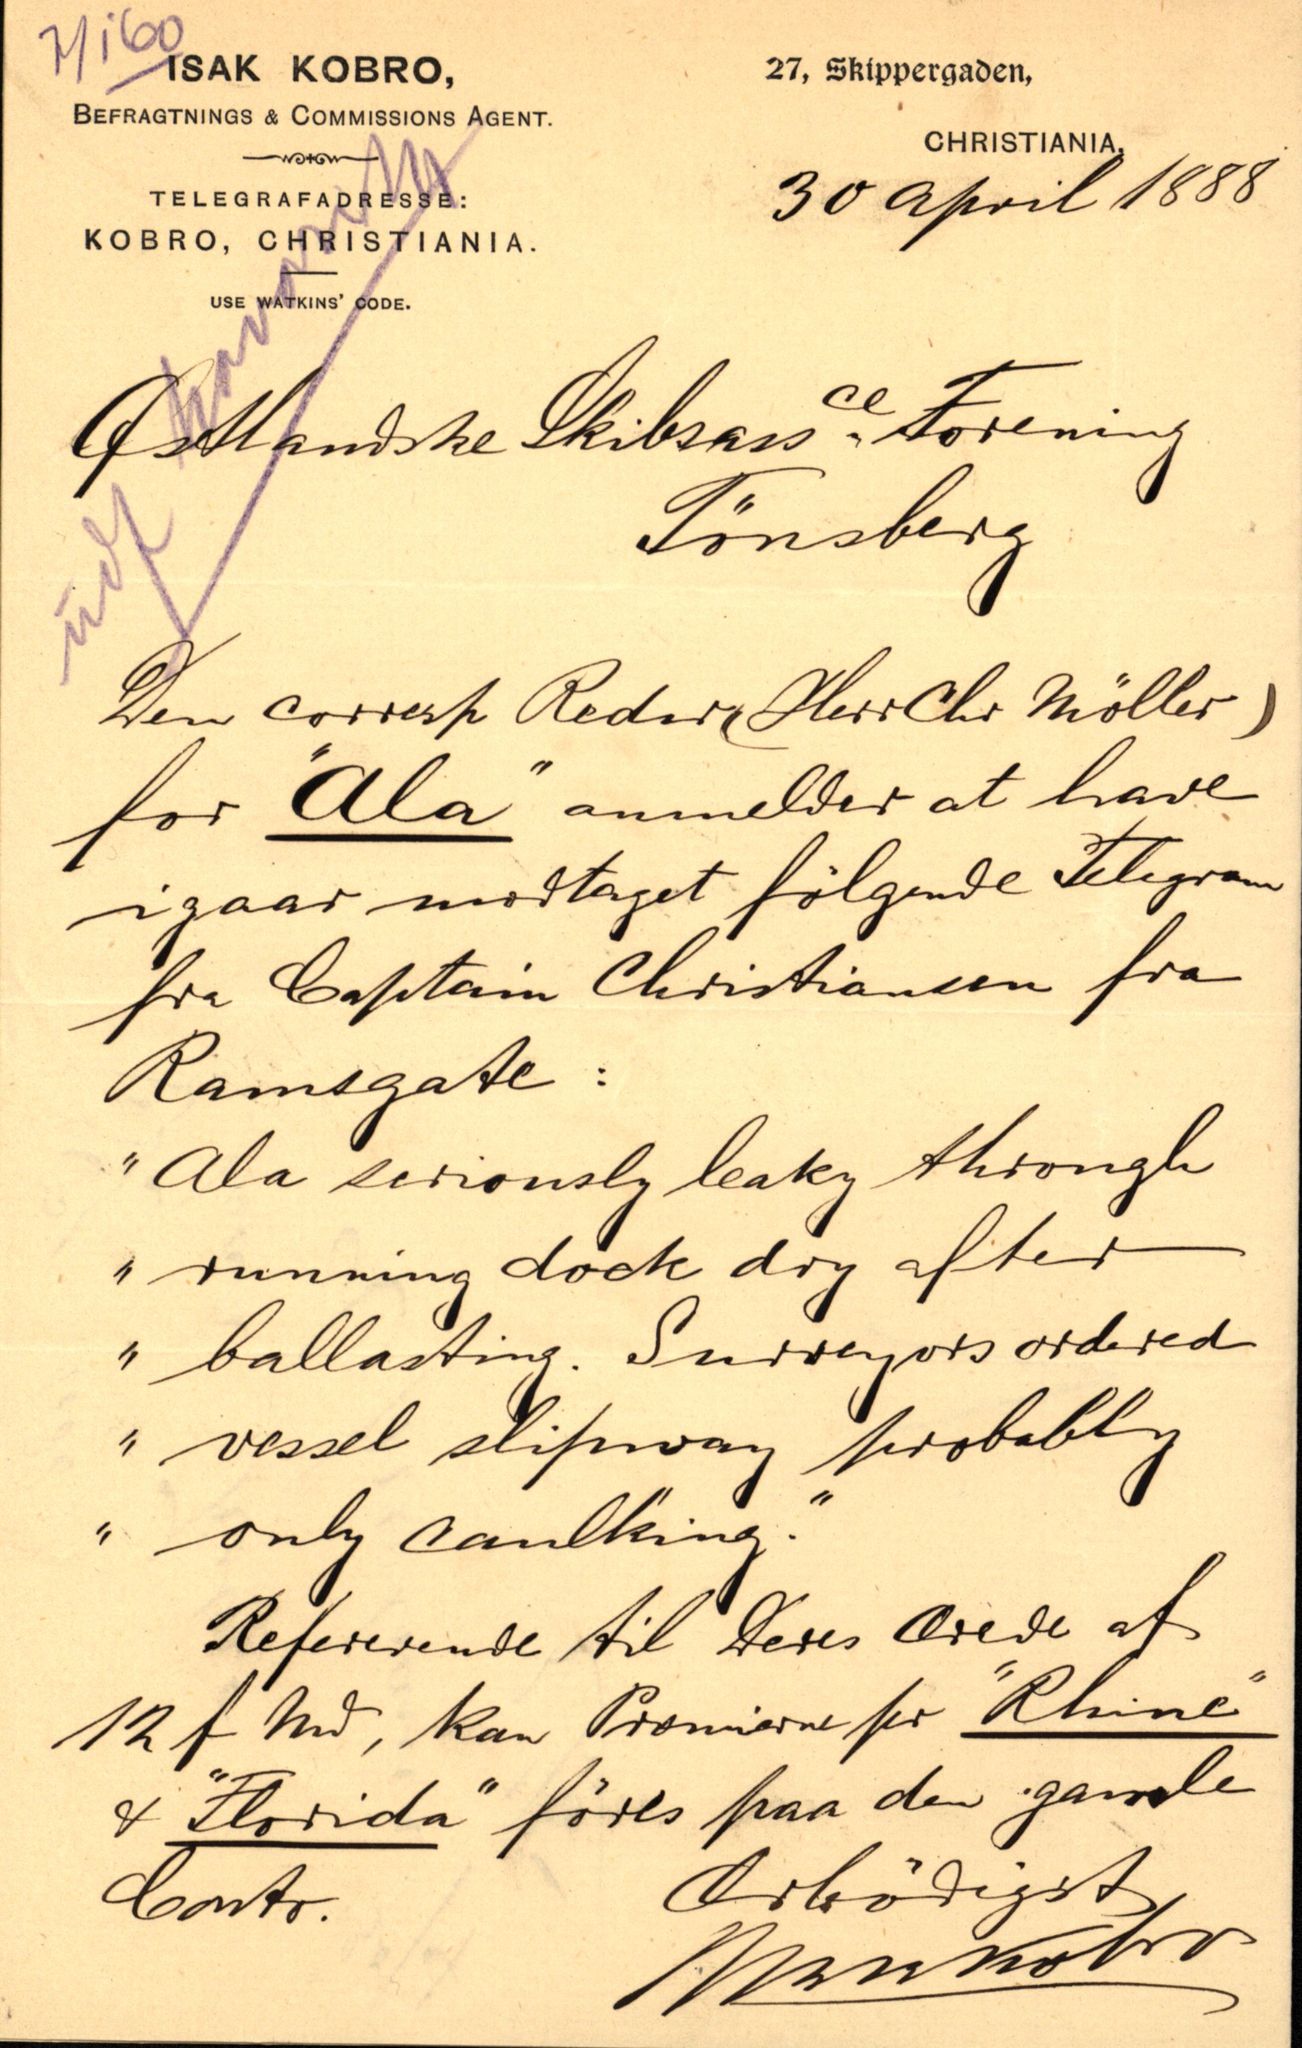 7/1 60
ISAK KOBRO,
BEFRAGTNINGS & COMMISSIONS AGENT.
TELEGRAFADRESSE:
KOBRO, CHRISTIANIA.
USE WATKINS' CODE.
27, Skippergaden,
CHRISTIANIA,
30 april 1888
Østlandske Skibsassce Forening
Tönsberg
Den corresp Reder (Herr Chr Möller)
for "Ala" anmelder at have
igaar modtaget fölgende Telegram
fra Captain Christiansen fra
Ramsgate:
"Ala seriously leaky through
" running dock dry after
" ballasting. Surveyors ordered
" vessel slipway probably
" only caulking."
Refererende til Deres Ærede af
12 f Md, kan Præmierne pr "Rhine"
& "Florida" föres paa den gamle
Conto.
Ærbödigst
Isak Kobro